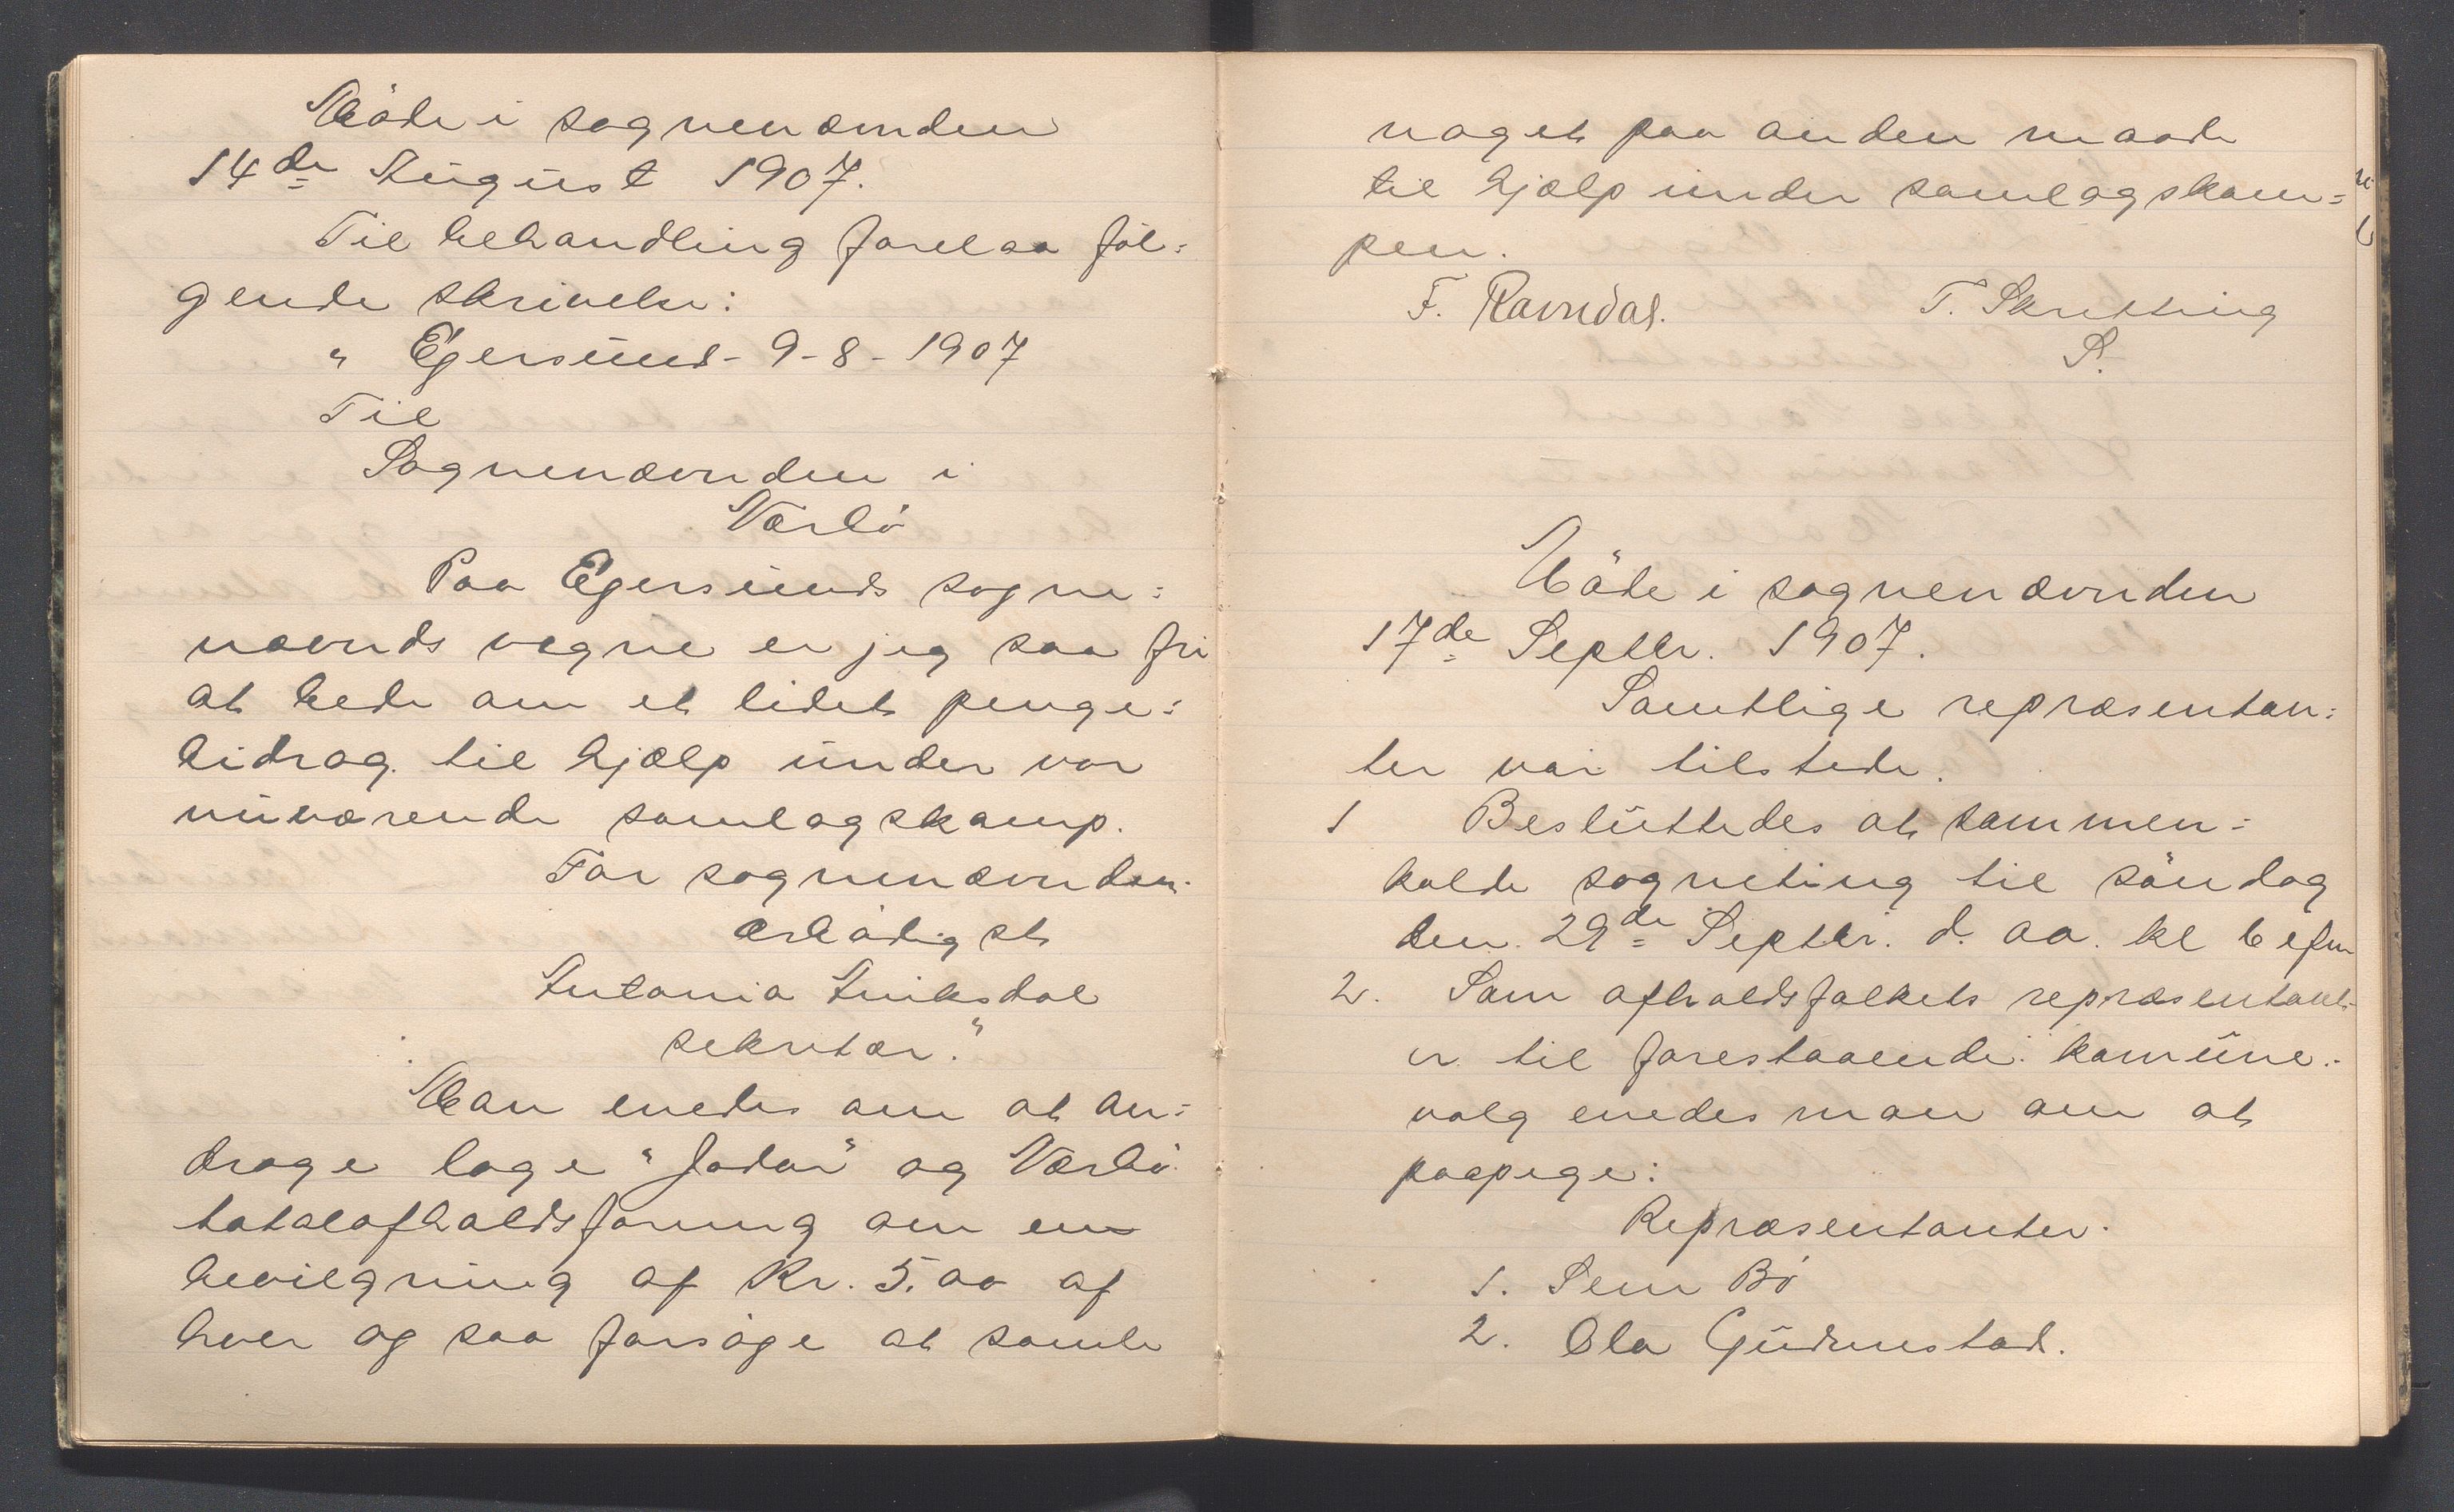 Møde i sognenævnden
14de August 1907.
Til behandling forelaa føl=
gende skrivelse:
" Egersund - 9 - 8 - 1907
Til
Sognenævnden i
Nærbø
Paa Egersunds sogne=
nævnds vegne er jeg saa fri
at bede om et lidet penge=
bidrag til hjælp under vor
nuværende samlagskamp.
For sognenævnden.
ærbødigst
Antonia
sekretær."
Man enedes om at an=
drage loge "Jadar" og Nærbø
totalafholdsforning om en
bevilgning af Kr. 5.00 af
hver og saa forsøge at samle
noget paa anden maade
til hjælp under samlagskam=
pen.
F. Ravndal. T. Skretting
S.
Møde i sognenævnden
17de Septbr. 1907.
Samtlige repræsentan=
ter var tilstede.
1 Besluttedes at sammen=
kalde sogneting til søndag
den 29de Septbr. d. aa. kl 6 efm
2. Som afholdsfolkets repræsentant-
er til forestaaende komune=
valg enedes man om at
paapege:
Repræsentanter.
1. Sem Bø
2. Ola Gudmestad.